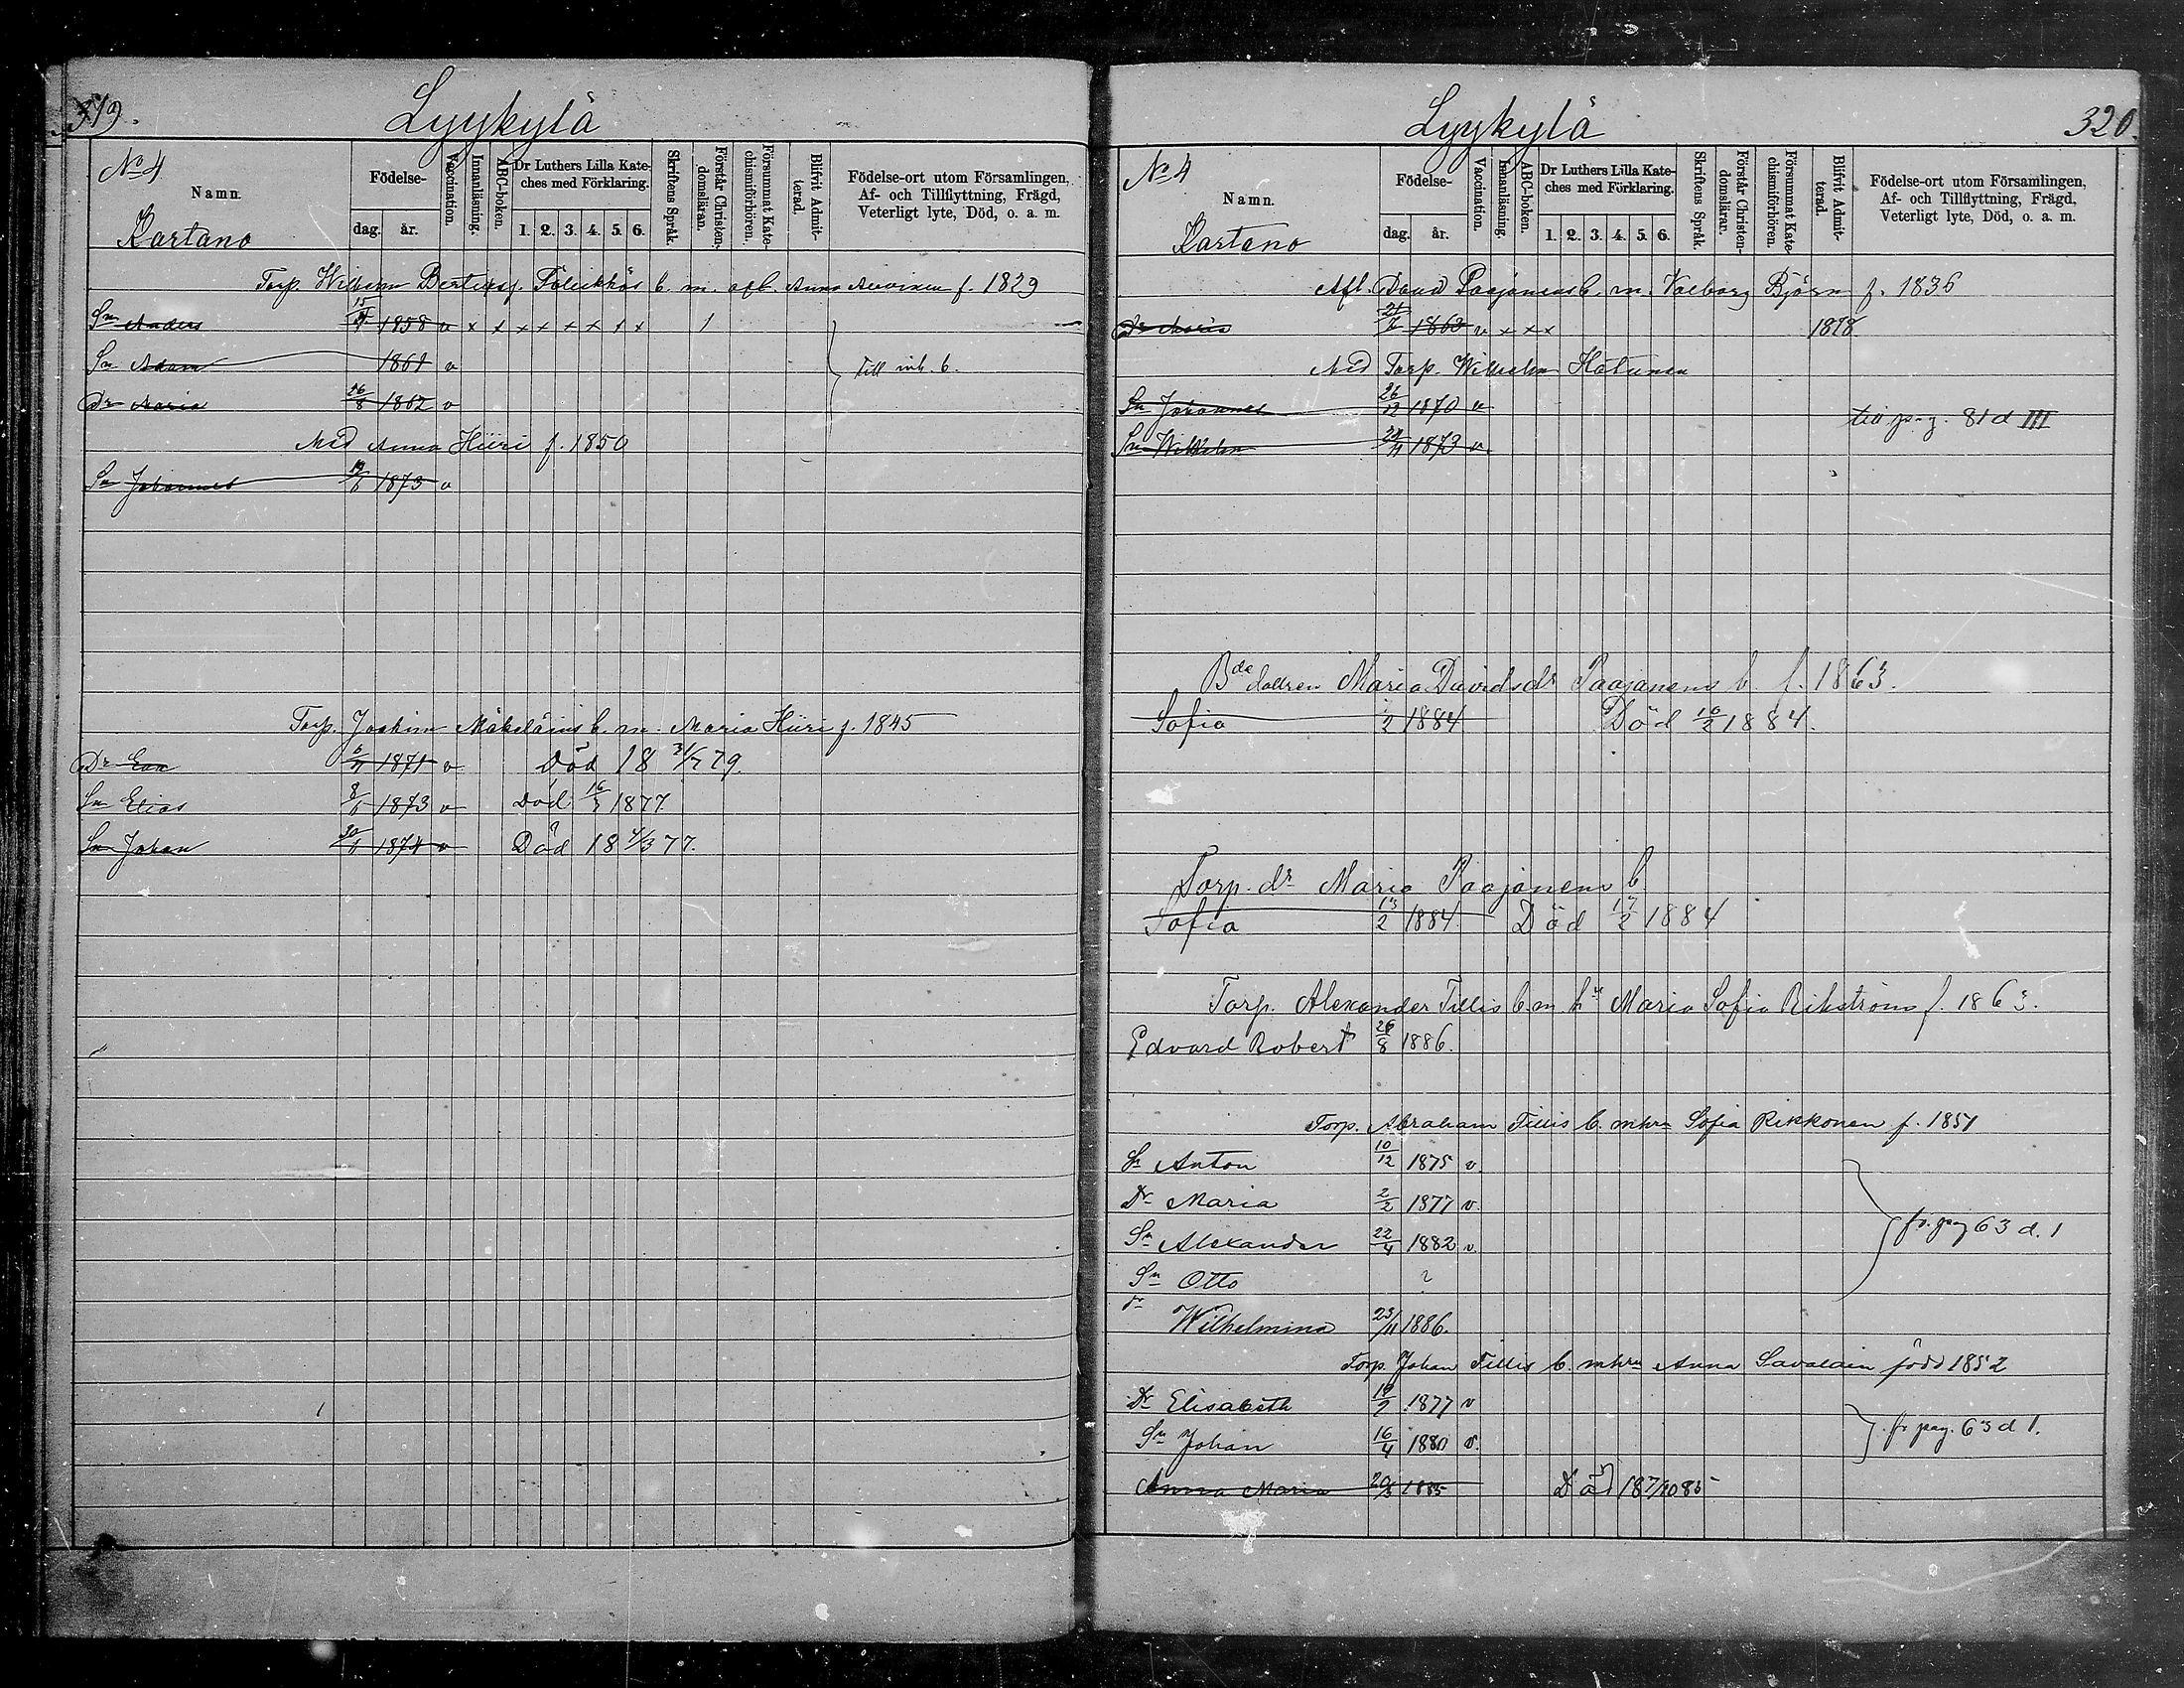 319.
Lyykylä
No 4
Namn.
Kartano
Födelse-
dag.
år.
Vaccination.
Innanläsning.
ABC-boken.
Dr Luthers Lilla Kate-
ches med Förklaring.
1. 2. 3. 4. 5. 6.
Skriftens Språk.
Förstår Christen-
domsläran.
Försummat Kate-
chismiförhören.
Blifvit Admit-
terad.
Födelse-ort utom Församlingen,
Af- och Tillflyttning, Frägd,
Veterligt lyte, Död, o. a. m.
Torp. Wilhelm b. m. afl. Anna f. 1829
Sn Anders 15 1858 v x x x x x x x x 1
Sn Adam 1861 v Till inh. 6.
Dr Maria 26/8 1862 v
Med Anna Hiiri f. 1850
Sn Johannes 1873 v
Torp. Joakim Mäkeläins b. m. Maria Hiiri f. 1845
Dr Eva 1871 v Död 18 31/7 79.
Sn Elias 1873 v Död 16/3 1877.
Sn Johan 1874 v Död 18 4/3 77.
Lyykylä
320.
No 4
Namn.
Kartano
Födelse-
dag.
år.
Vaccination.
Innanläsning.
ABC-boken.
Dr Luthers Lilla Kate-
ches med Förklaring.
1. 2. 3. 4. 5. 6.
Skriftens Språk.
Förstår Christen-
domsläran.
Försummat Kate-
chismiförhören.
Blifvit Admit-
terad.
Födelse-ort utom Församlingen,
Af- och Tillflyttning, Frägd,
Veterligt lyte, Död, o. a. m.
Afl. David Paajanens b. m. Valborg Björn f. 1836
Dr Maria 1863 v x x x 1878
Med Torp. Wilhelm Hätunen
Sn Johannes 26/12 1870 v
till pag. 81 d III
Sn Wilhelm 1873 v
Bde dottren Maria Davidsdr Paajanens b. f. 1863.
Sofia 1/2 1884 Död 16/2 1884.
Torp. dr Maria Paajanens b
Sofia 13/2 1884 Död 17/2 1884
Torp. Alexander Tillis b. m. Maria Sofia Rikströms f. 1863.
Edvard Robert 26/8 1886.
Torp. Abraham Tillis b. mhru Sofia Rikkonen f. 1851
Sn Anton 10/12 1875 v
Dr Maria 2/2 1877 v.
fr. pag 63 d. 1
Sn Alexander 22/4 1882 v.
Sn Otto ?
dr Wilhelmina 23/11 1886.
Torp. Johan Tillis b. mhru Anna Savalain född 1852
Dr Elisabeth 19/2 1877 v
fr pag. 63 d 1.
Sn Johan 16/4 1880 v.
Anna Maria 20/3 1885 Död 18 7/10 85